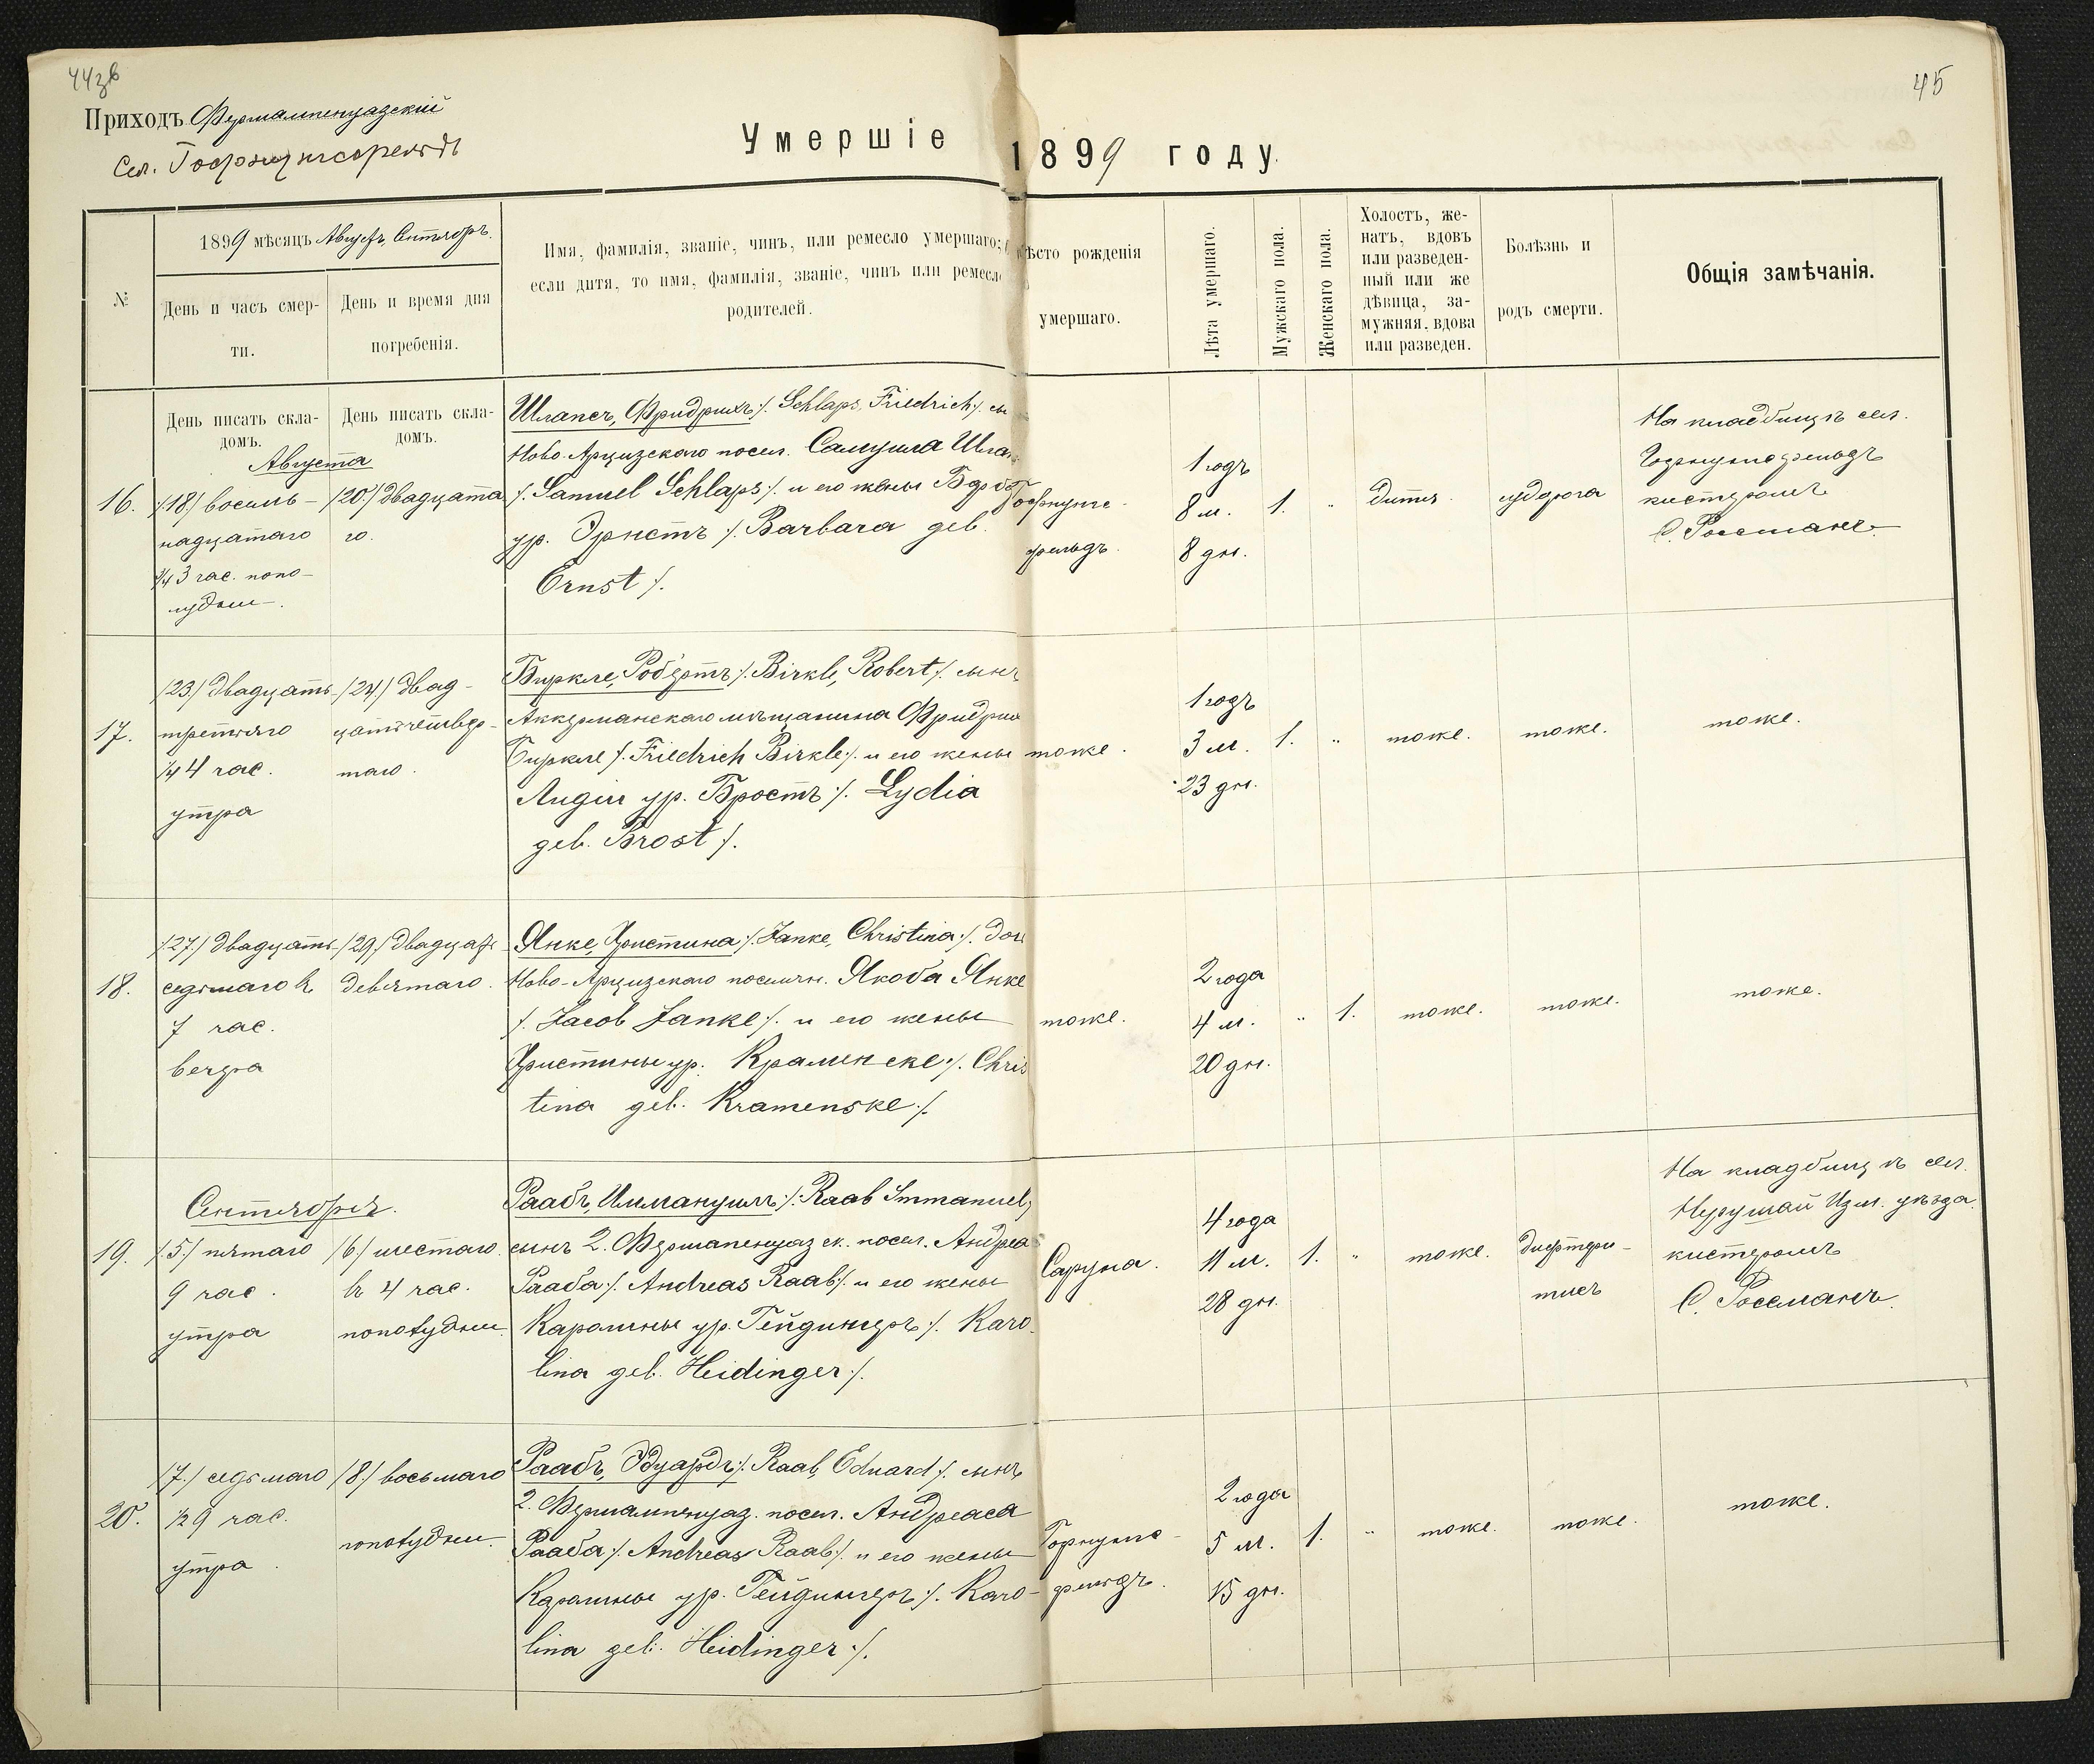 44зв
45
Приходъ Фершампенуазскій
Сел. Гофнунгсфельдъ
Умершіе 1899 году.
№
1899 мѣсяцъ Августъ, Сентябрь.
День и часъ смер-
ти.
День и время дня
погребенія.
Имя, фамилія, званіе, чинъ, или ремесло умершаго;
если дитя, то имя, фамилія, званіе, чинъ или ремесло
родителей.
Мѣсто рожденія
умершаго.
Лѣта умершаго.
Мужскаго пола.
Женскаго пола.
Холостъ, же-
натъ, вдовъ
или разведен-
ный или же
дѣвица, за-
мужняя, вдова
или разведен.
Болѣзнь и
родъ смерти.
Общія замѣчанія.
День писать скла-
домъ.
День писать скла-
домъ.
Августа
16.
/18./ восемь-
надцатаго
3/4 3 час. попо-
лудни.
/20./ двадцата
го.
Шлапсъ, Фридрихъ ⁒ Schlaps, Friedrich ⁒ сы
Ново-Арцизскаго посел. Самуила Шлап
⁒ Samuel Schlaps ⁒ и его жены Барба
ур. Эрнстъ ⁒ Barbara geb.
Ernst ⁒
Гофнунгс-
фельдъ.
1 годъ
8 м.
8 дн.
1.
"
дитя.
судорога
На кладбищѣ сел.
Гофнунгсфельдъ
кистеромъ
С. Россманъ.
17.
/23./ двадцать-
третьяго
1/4 4 час.
утра
/24./ двад-
цатьчетвер-
таго.
Биркле, Робертъ ⁒ Birkle, Robert ⁒ сынъ
Аккерманскаго мѣщанина Фридрих
Биркле ⁒ Friedrich Birkle ⁒ и его жены
Лидіи ур. Бростъ ⁒ Lydia
geb. Brost ⁒
тоже.
1 годъ
3 м.
23 дн.
1.
"
тоже.
тоже.
тоже.
18.
/27./ двадцать-
седьмаго въ
7 час.
вечера
/29./ двадцать
девятаго.
Янке, Христина ⁒ Janke, Christina ⁒ доч
Ново-Арцизскаго поселян. Якоба Янке
⁒ Jacob Janke ⁒ и его жены
Христины ур. Краменске ⁒ Chris
tina geb. Kramenske ⁒
тоже.
2 года
4 м.
20 дн.
"
1.
тоже.
тоже.
тоже.
Сентября.
19.
/5./ пятаго
9 час.
утра
/6./ шестаго
въ 4 час.
пополудни.
Раабъ, Иммануилъ ⁒ Raab Immanuel,
сынъ 2. Фершапенуазск. посел. Андреа
Рааба ⁒ Andreas Raab ⁒ и его жены
Каролины ур. Гейдингеръ ⁒ Karo-
lina geb. Heidinger ⁒
Сарупа.
4 года
11 м.
28 дн.
1.
"
тоже.
дифтери-
тисъ
На кладбищѣ сел.
Нерушай Изм. уѣзда
кистеромъ
С. Россманъ.
20.
/7./ седьмаго
1/2 9 час.
утра.
/8./ восьмаго
пополудни.
Раабъ, Эдуардъ ⁒ Raab, Eduard ⁒ сынъ
2. Фершампенуаз. посел. Андреаса
Рааба ⁒ Andreas Raab ⁒ и его жены
Каролины ур. Гейдингеръ ⁒ Karo-
lina geb. Heidinger ⁒
Гофнунгс-
фельдъ.
2 года
5 м.
15 дн.
1.
"
тоже.
тоже.
тоже.